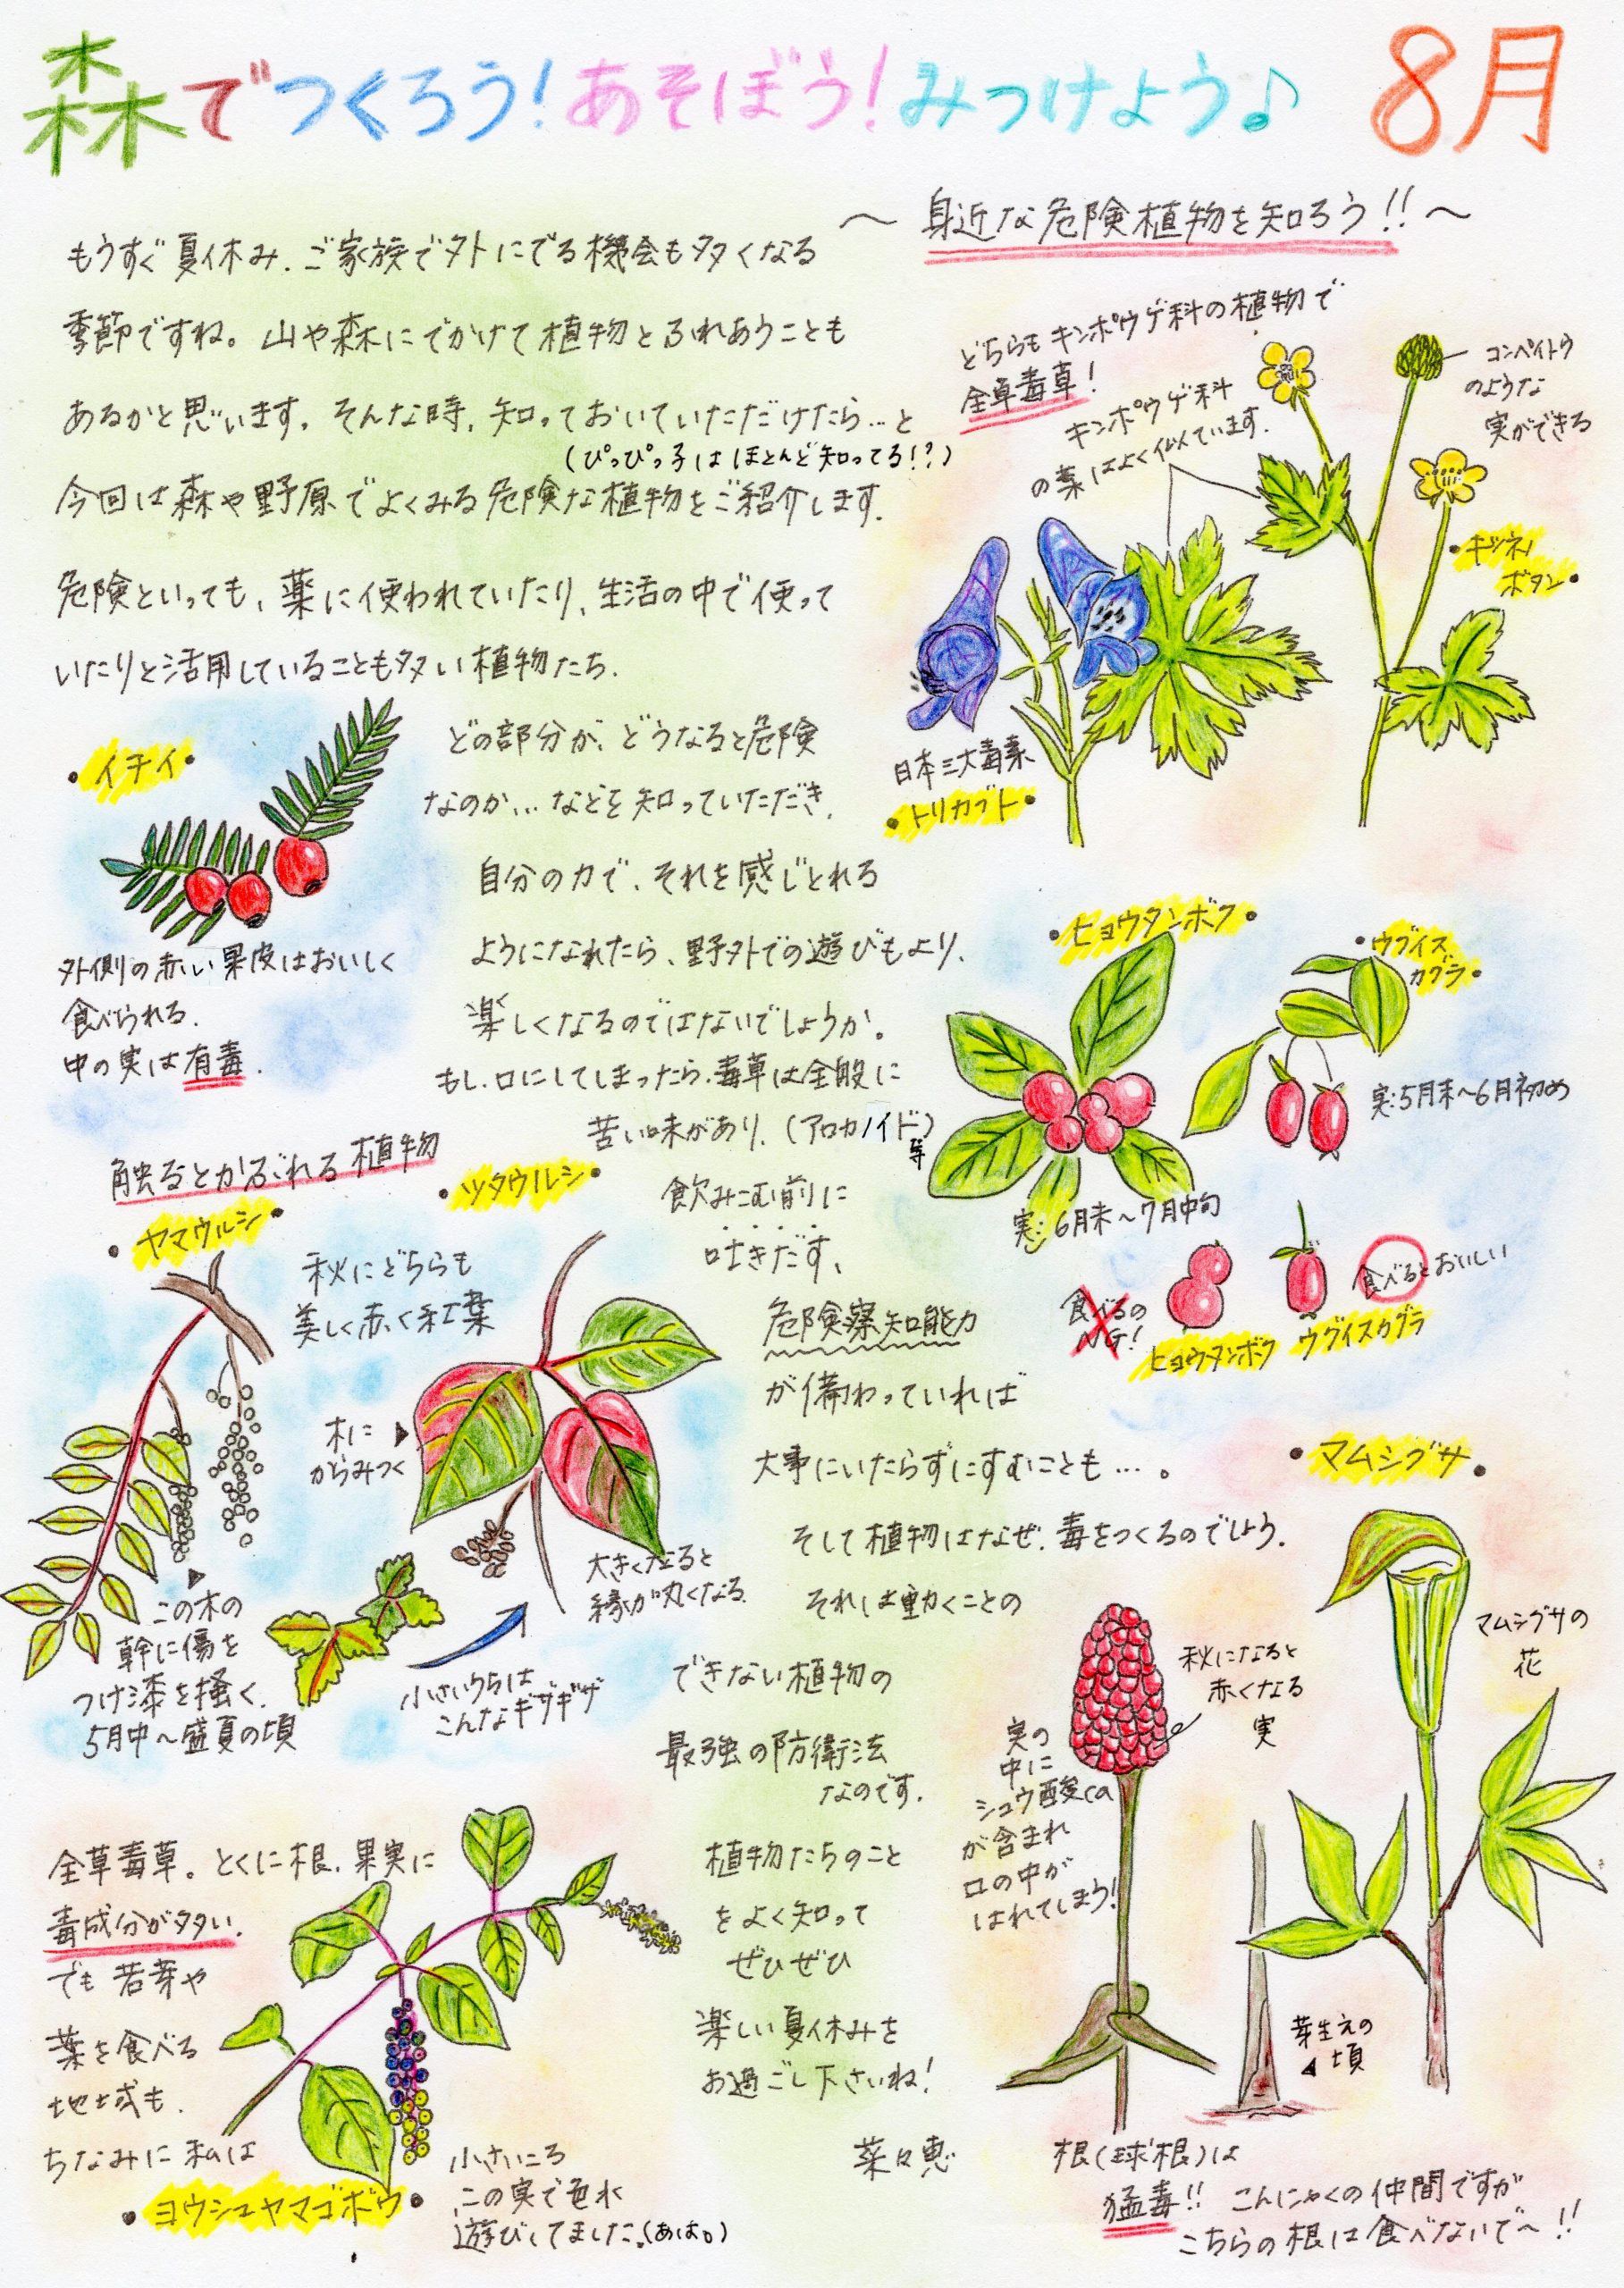 森でつくろう!あそぼう!みつけよう♪ 8月
～身近な危険植物を知ろう!!～
もうすぐ夏休み、ご家族で外にでる機会も多くなる
季節ですね。山や森にでかけて植物とふれあうことも
あるかと思います。そんな時、知っておいていただけたら…と
(ぴっぴっ子はほとんど知ってる!?)
今回は森や野原でよくみる危険な植物をご紹介します。
危険といっても、薬に使われていたり、生活の中で使って
いたりと活用していることも多い植物たち。
どの部分が、どうなると危険
なのか…などを知っていただき、
自分の力で、それを感じとれる
ようになれたら、野外での遊びもより、
楽しくなるのではないでしょうか。
もし、口にしてしまったら、毒草は全般に
苦い味があり、(アロカノイド)等
飲みこむ前に
吐きだす、
危険察知能力
が備わっていれば
大事にいたらずにすむことも…。
そして植物はなぜ、毒をつくるのでしょう。
それは動くことの
できない植物の
最強の防衛法
なのです。
植物たちのこと
をよく知って
ぜひぜひ
楽しい夏休みを
お過ごし下さいね!
菜々恵
どちらもキンポウゲ科の植物で
全草毒草!
キンポウゲ科
の葉はよく似ています。
コンペイトウ
のような
実ができる
・キツネノ
ボタン・
日本三大毒素
・トリカブト・
・イチイ・
外側の赤い果皮はおいしく
食べられる。
中の実は有毒。
・ヒョウタンボク・
・ウグイス
カグラ・
実:5月末～6月初め
実:6月末～7月中旬
食べるの
ヒョウタンボク
食べるとおいしい
ウグイスカグラ
触るとかぶれる植物
・ヤマウルシ・
・ツタウルシ・
秋にどちらも
美しく赤く紅葉
木に
からみつく
この木の
幹に傷を
つけ漆を掻く。
5月中～盛夏の頃
大きくなると
縁が丸くなる。
小さいうちは
こんなギザギザ
・マムシグサ・
マムシグサの
花
秋になると
赤くなる
実
実の
中に
シュウ酸Ca
が含まれ
口の中が
はれてしまう!
芽生えの
頃
根(球根)は
猛毒!! こんにゃくの仲間ですが
こちらの根は食べないで～!!
全草毒草。とくに根、果実に
毒成分が多い。
でも若芽や
葉を食べる
地域も。
ちなみに私は
・ヨウシュヤマゴボウ・
小さいころ
この実で色水
遊びしてました。(あは。)